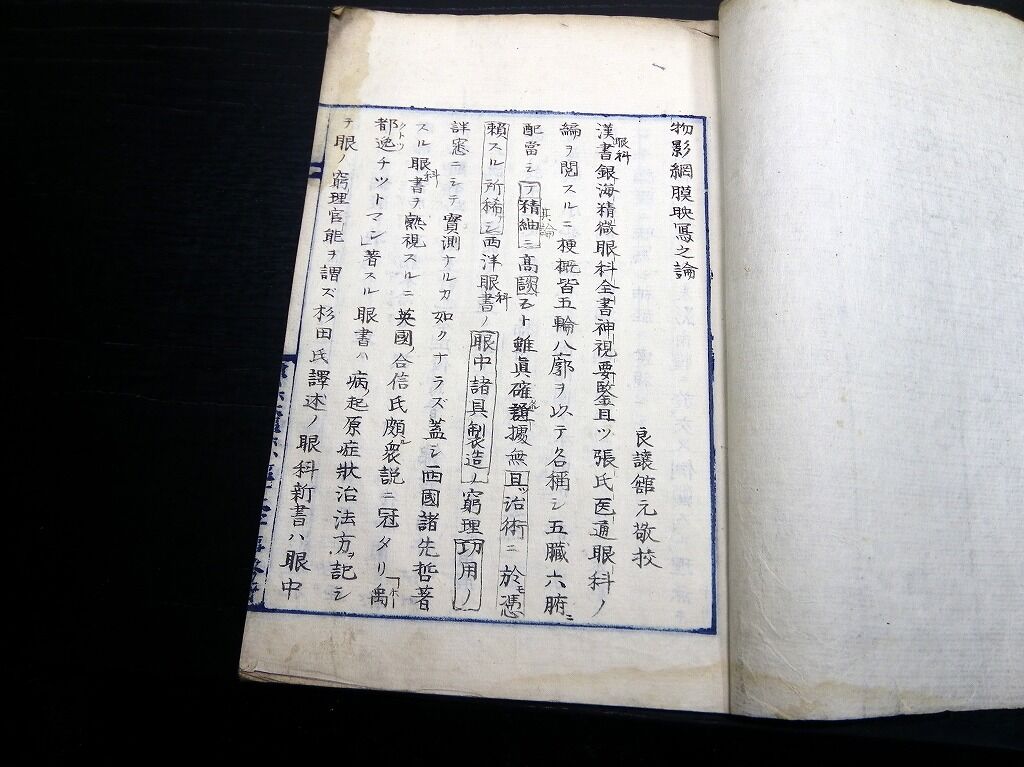 物影網膜映寫之論
良讓舘元敬挍
漢書眼科銀海精微眼科全書神視要鑒且ツ張氏医通眼科ノ
編ヲ閲スルニ梗概皆五輪八廓ヲ以テ名稱シ五臓六腑ニ
配當シテ其論精紬ニ高 ト雖眞確 據無且ツ治術ニ於モ憑
賴スル所稀シ西洋眼科書ノ眼中諸具製造ノ窮理功用ノ
詳悉ニシテ實測ナルカ如クナラズ蓋シ西國諸先哲著
スル眼科書ヲ熟視スルニ英國ノ合信氏頗ル衆說ニ冠タリ禹
都逸チットマン著スル眼書ハ病ノ起原症狀治法方ヲ記シ
テ眼ノ窮理官能ヲ謂ズ杉田氏譯述ノ眼科新書ハ眼中